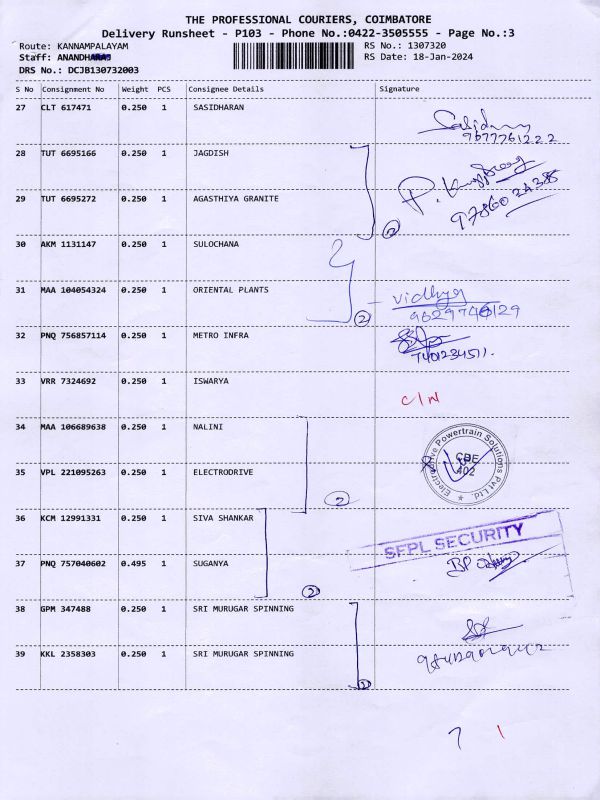 THE PROFESSIONAL COURIERS, COIMBATORE
Delivery Runsheet - P103 - Phone No.:0422-3505555 - Page No.:3
Route: KANNAMPALAYAM RS No.: 1307320
Staff: ANANDHARAJ RS Date: 18-Jan-2024
DRS No.: DCJB130732003
S No Consignment No Weight PCS Consignee Details Signature
27 CLT 617471 0.250 1 SASIDHARAN
9677761222
28 TUT 6695166 0.250 1 JAGDISH
29 TUT 6695272 0.250 1 AGASTHIYA GRANITE
2
30 AKM 1131147 0.250 1 SULOCHANA
31 MAA 104054324 0.250 1 ORIENTAL PLANTS vidhya
2
32 PNQ 756857114 0.250 1 METRO INFRA
7401234511.
33 VRR 7324692 0.250 1 ISWARYA
C/N
34 MAA 106689638 0.250 1 NALINI
Electrodrive Powertrain Solutions Pvt Ltd.
CBE
402
35 VPL 221095263 0.250 1 ELECTRODRIVE
2
36 KCM 12991331 0.250 1 SIVA SHANKAR
SFPL SECURITY
37 PNQ 757040602 0.495 1 SUGANYA
2
38 GPM 347488 0.250 1 SRI MURUGAR SPINNING
39 KKL 2358303 0.250 1 SRI MURUGAR SPINNING
2
7 1